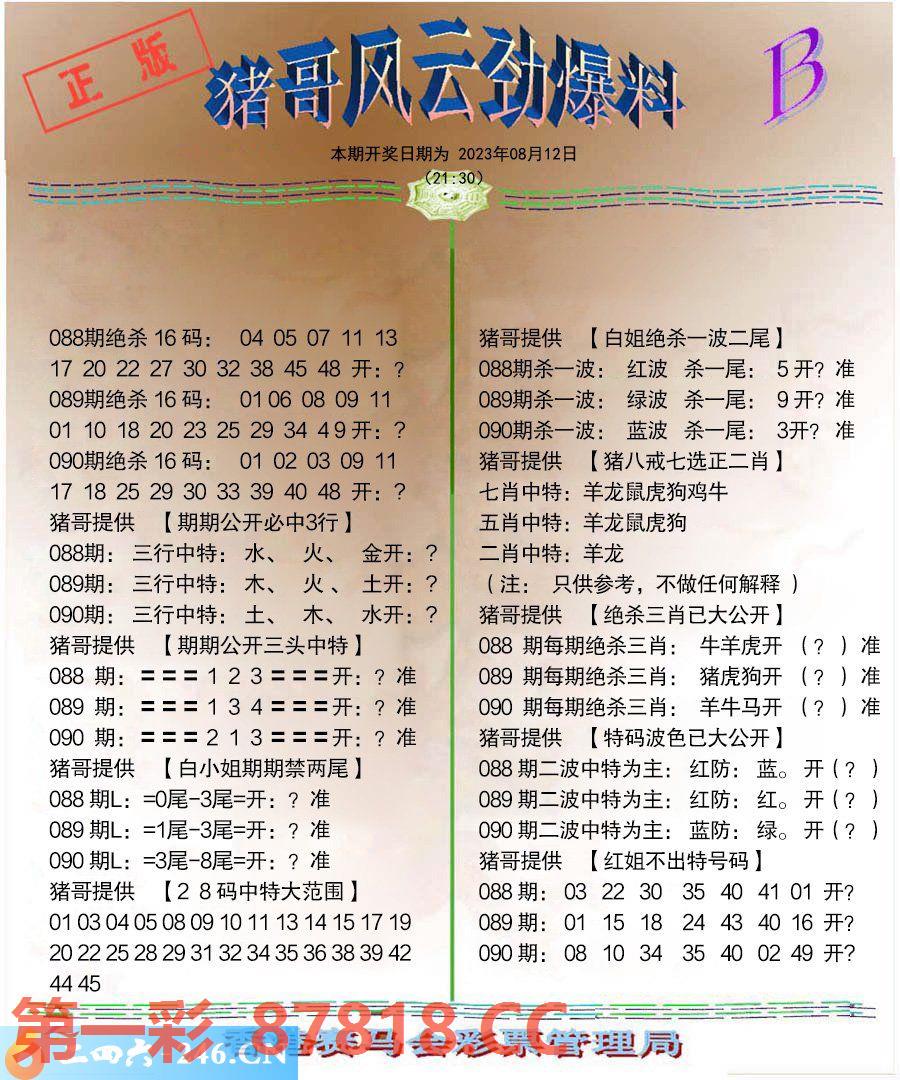 正版
猪哥风云劲爆料
B
本期开奖日期为 2023年08月12日
(21:30)
088期绝杀16码： 04 05 07 11 13
17 20 22 27 30 32 38 45 48 开：?
089期绝杀16码： 01 06 08 09 11
01 10 18 20 23 25 29 34 4 9 开：?
090期绝杀16码： 01 02 03 09 11
17 18 25 29 30 33 39 40 48 开：?
猪哥提供 【期期公开必中3行】
088期：三行中特：水、 火、 金开：?
089期：三行中特：木、 火、土开：?
090期：三行中特：土、 木、 水开：?
猪哥提供 【期期公开三头中特】
088 期：===1 2 3===开：? 准
089 期：===1 3 4===开：? 准
090 期：===2 1 3===开：? 准
猪哥提供 【白小姐期期禁两尾】
088期L：=0尾-3尾=开：? 准
089期L：=1尾-3尾=开：? 准
090期L：=3尾-8尾=开：? 准
猪哥提供 【28码中特大范围】
01 03 04 05 08 09 10 11 13 14 15 17 19
20 22 25 28 29 31 32 34 35 36 38 39 42
44 45
猪哥提供 【白姐绝杀一波二尾】
088期杀一波： 红波 杀一尾： 5开? 准
089期杀一波： 绿波 杀一尾： 9开? 准
090期杀一波： 蓝波 杀一尾： 3开? 准
猪哥提供 【猪八戒七选正二肖】
七肖中特：羊龙鼠虎狗鸡牛
五肖中特：羊龙鼠虎狗
二肖中特：羊龙
（注： 只供参考，不做任何解释 ）
猪哥提供 【绝杀三肖已大公开】
088 期每期绝杀三肖： 牛羊虎开 （？）准
089 期每期绝杀三肖： 猪虎狗开 （？）准
090 期每期绝杀三肖： 羊牛马开 （？）准
猪哥提供 【特码波色已大公开】
088期二波中特为主：红防：蓝。开（？）
089期二波中特为主：红防：红。开（？）
090期二波中特为主：蓝防：绿。开（？）
猪哥提供 【红姐不出特号码】
088期： 03 22 30 35 40 41 01 开?
089期： 01 15 18 24 43 40 16 开?
090期： 08 10 34 35 40 02 49 开?
第一彩 87818.CC
246.CN
赛马会彩票管理局